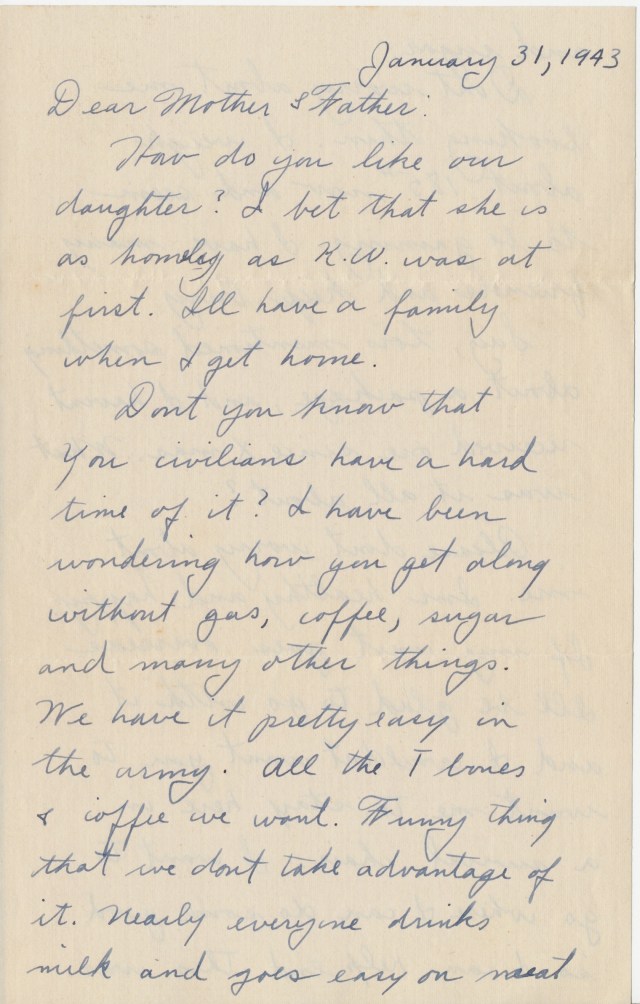 January 31, 1943
Dear Mother & Father:
How do you like our
daughter? I bet that she is
as homely as K.W. was at
first. I'll have a family
when I get home.
Dont you know that
You civilians have a hard
time of it? I have been
wondering how you get along
without gas, coffee, sugar
and many other things.
We have it pretty easy in
the army. All the T bones
& coffee we want. Funny thing
that we dont take advantage of
it. Nearly everyone drinks
milk and goes easy on meat